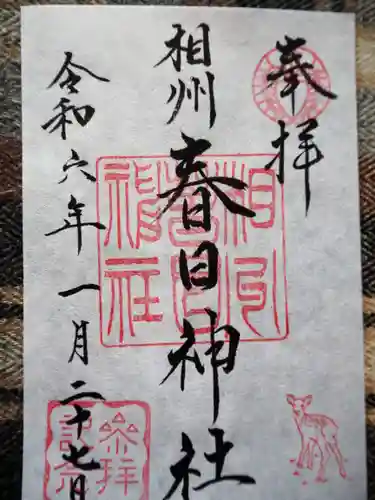 奉拝
相州
春日神社
令和六年一月二十七日
相州
春日
神社
参拝
記念